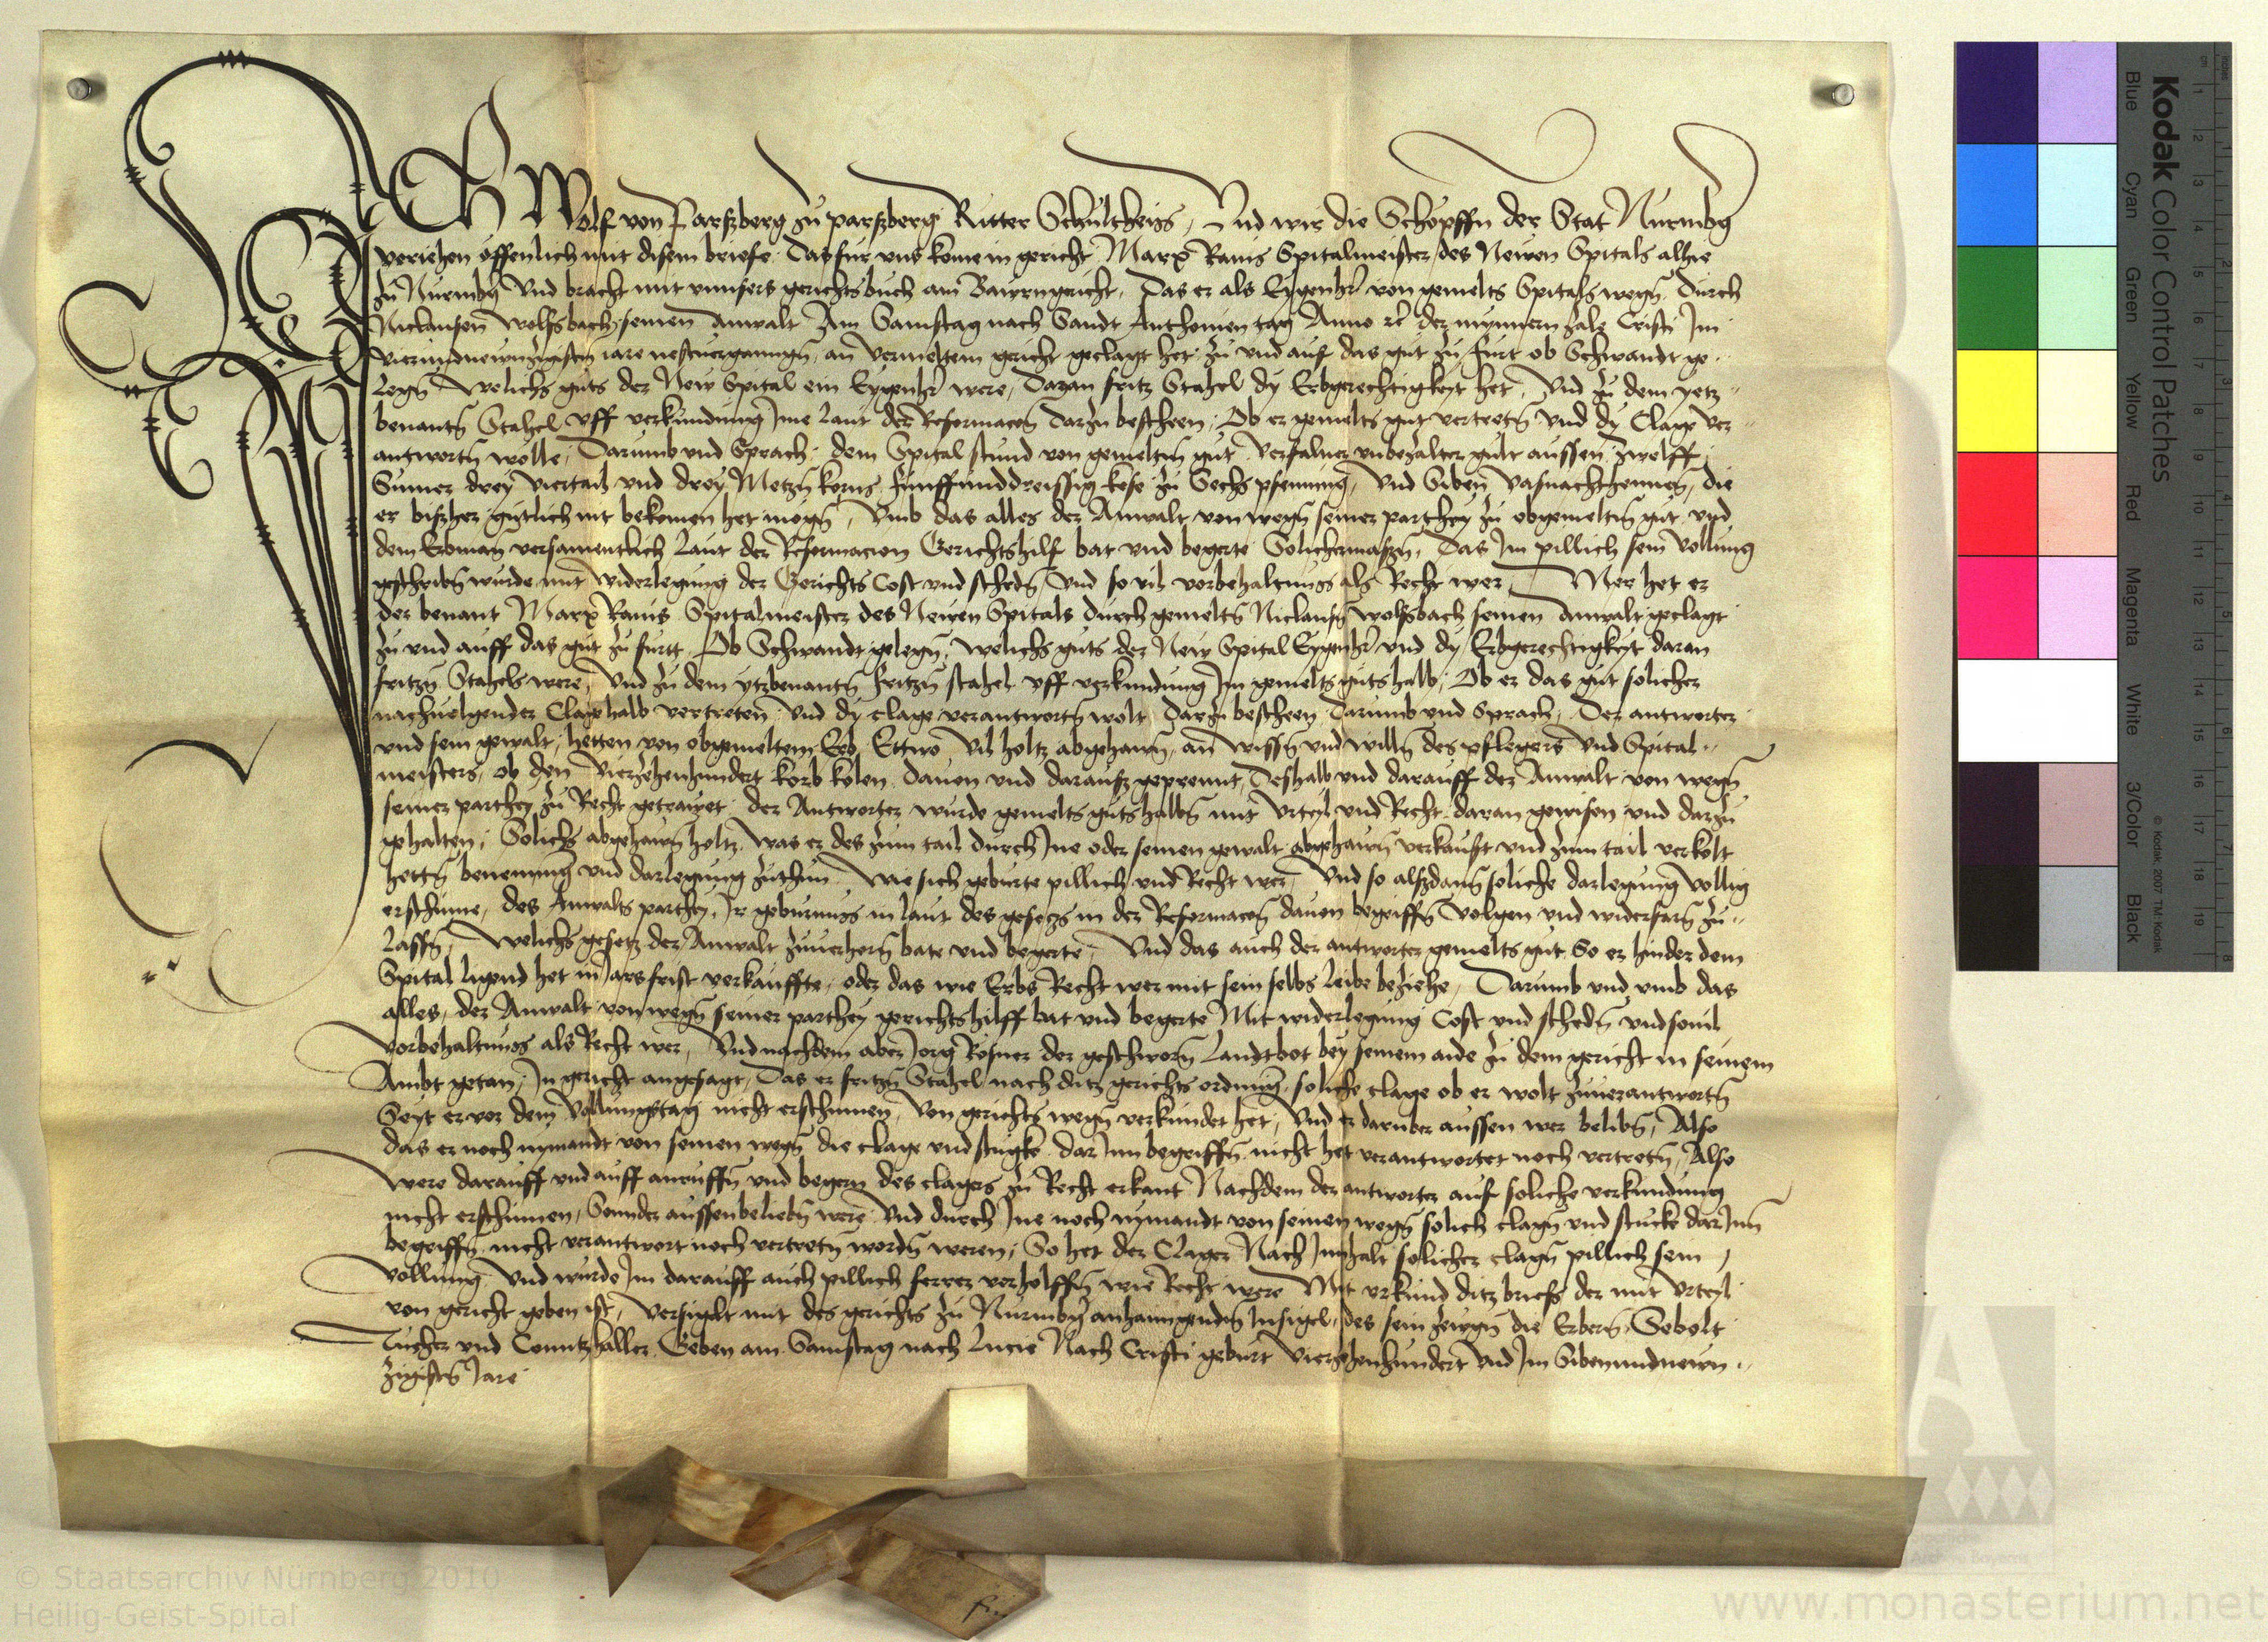 ICH Wolf von Parsperg zu parsperg Ritter Schultheis, Und wir die Schopffn der Stat Nurmbg
veriehen offenlich mit disem briefe Das fur uns kome in gericht Marx Rauis Spitalmeister des Newen Spitals alhie
zu Nurmbg Und bracht mit unnsers gerichtsbuch am Bawrngericht, Das er als Eygenhr von gemelts Spitals wegn durch
Niclausen Wolfsbach seinen Anwalt Am Samstag nach Sandt Anthonien tag Anno rc der mynnern zale Cristi Im
vierundnewnzigisten iare nestvergangn an vermeltem gericht geclagt het zu und auf das gut zu furt ob Schwandt ge
legn Welichs guts der New Spital ein Eygenhr were, Daran fritz Stahel dy Erbgerechtigkeyt het, Und zu dem yetz
benantn Stahel Uff verkundung Ime laut der Reformacon Darzu bescheen, Ob er gemelts gut vertretn Und dy Clage ver
antwortn wolle, Darumb und Sprach, dem Spital stund von gemeltm gut verfalner unbezalter gult aussen zwelff
Sumer drey viertail und drey Metzn korns funffunddreissig kese zu Sechs pfenning, Und Siben vasnachthennen, die
er bißher gutlich nit bekomen het mogn, Umb das alles der Anwalt von wegn seiner parthey zu obgemeltm gut und
dem Erbman versamentlich laut der Reformacion Gerichtshilf bat und begerte Solichermaßn, Das Im pillich sein vollung
geschribn wurde mit widerlegung der Gerichts Cost und schedn, Und so vil vorbehaltnuss als Recht wer, Mer het er
der benant Marx Rauis Spitalmeister des Newen Spitals durch gemeltn Niclausn Wolfsbach seinen Anwalt geclagt
zu und auff das gut zu furtt Ob Schwandt gelegn, Welichs guts der New Spital Eygenhr und dy Erbgerechtigkeyt daran
fritzn Stahels were, Und zu dem ytzbenantn fritzn stahel uff verkundung Im gemelts guts halb, Ob er das gut solicher
nachuolgender Clag halb vertreten Und dy clage verantwortn wolt, darzu bescheen Darumb und Sprach, Der antworter
und sein gewalt, hetten von obgemeltem Erb Ettwo vil holtz abgehawn, an wissn und willn des pflegers Und Spital
meisters, ob den vierzehenhundert korb kolen dauon und darauß geprennt, Deshalb und darauff der Anwalt von wegn
seiner parthey zu Recht getrawet der Antworter wurde gemelts guts halbn mit Urteyl und Recht daran gewisen und darzu
gehalten, Solichs abgehawn holtz was er des zum tail durch Ine oder seinen gewalt abgehawn verkauft und zum tail verkolt
hettn benennung und darlegung zuthun Wie sich geburte pillich und Recht wer, Und so alßdann soliche darlegung vollig
erschine, des Anwalts parthey, Ir geburnuss in laut des gesetzs in der Reformacon dauon begriffn volgen und widerfarn zu
lassn, Welichs gesetz der Anwalt zuuerhorn bate und begerte, Und das auch der antworter gemelts gut So er hinder dem
Spital ligend het in Jarsfrist verkauffte, oder das wie Erbs Recht wer mit sein selbs leibe beziehe, Darumb und umb das
alles, der Anwalt von wegn seiner parthey gerichtshilff bat und begerte Mit widerlegung Cost und schedn und souil
vorbehaltnuss als Recht wer, Und nachdem aber Jorg Rosner der geschworn Landtbot bey seinem aide zu dem gericht in seinem
Ambt getan, In gericht angesagt, Das er fritzn Stahel nach ditz gerichts ordnung soliche clage ob er wolt zuuerantwortn
Seyt er vor dem vollungstag nicht erschinnen, Von gerichts wegn verkundet het, Und er daruber aussen wer belibn, Also
das er noch nymandt von seinen wegn die clage und stugke dar Inn begriffn nicht het verantwortet noch vertretn, Also
were darauff und auff anruffn und begern des clagers zu Recht erkant Nachdem der antworter auf soliche verkundung
nicht erschinnen, Sunder aussenbelibn were Und durch Ine noch nymandt von seinen wegn solich clagn und stucke dar Inn
begriffn nicht verantwort noch vertretn wordn weren, So het der Clager Nach Innhalt solicher clagn pillich sein
vollung Und wurde Im darauff auch pillich ferrer verholffn wie Recht were Mit urkund ditz briefs der mit Urteyl
von gericht geben ist, Versigelt mit des gerichts zu Nurmbg anhanngendn Insigel, des sein zewgn die Erbern, Sebolt
Tucher und Conntz haller Geben am Samstag nach Lucie Nach Cristi geburt vierzehenhundert Und Im Sibenundnewn
zigistn Jare
Kodak Color Control Patches
Blue Cyan Green Yellow Red Magenta White 3/Color Black
© Kodak 2007 TM: Kodak
© Staatsarchiv Nürnberg 2010
Heilig-Geist-Spital
www.monasterium.net